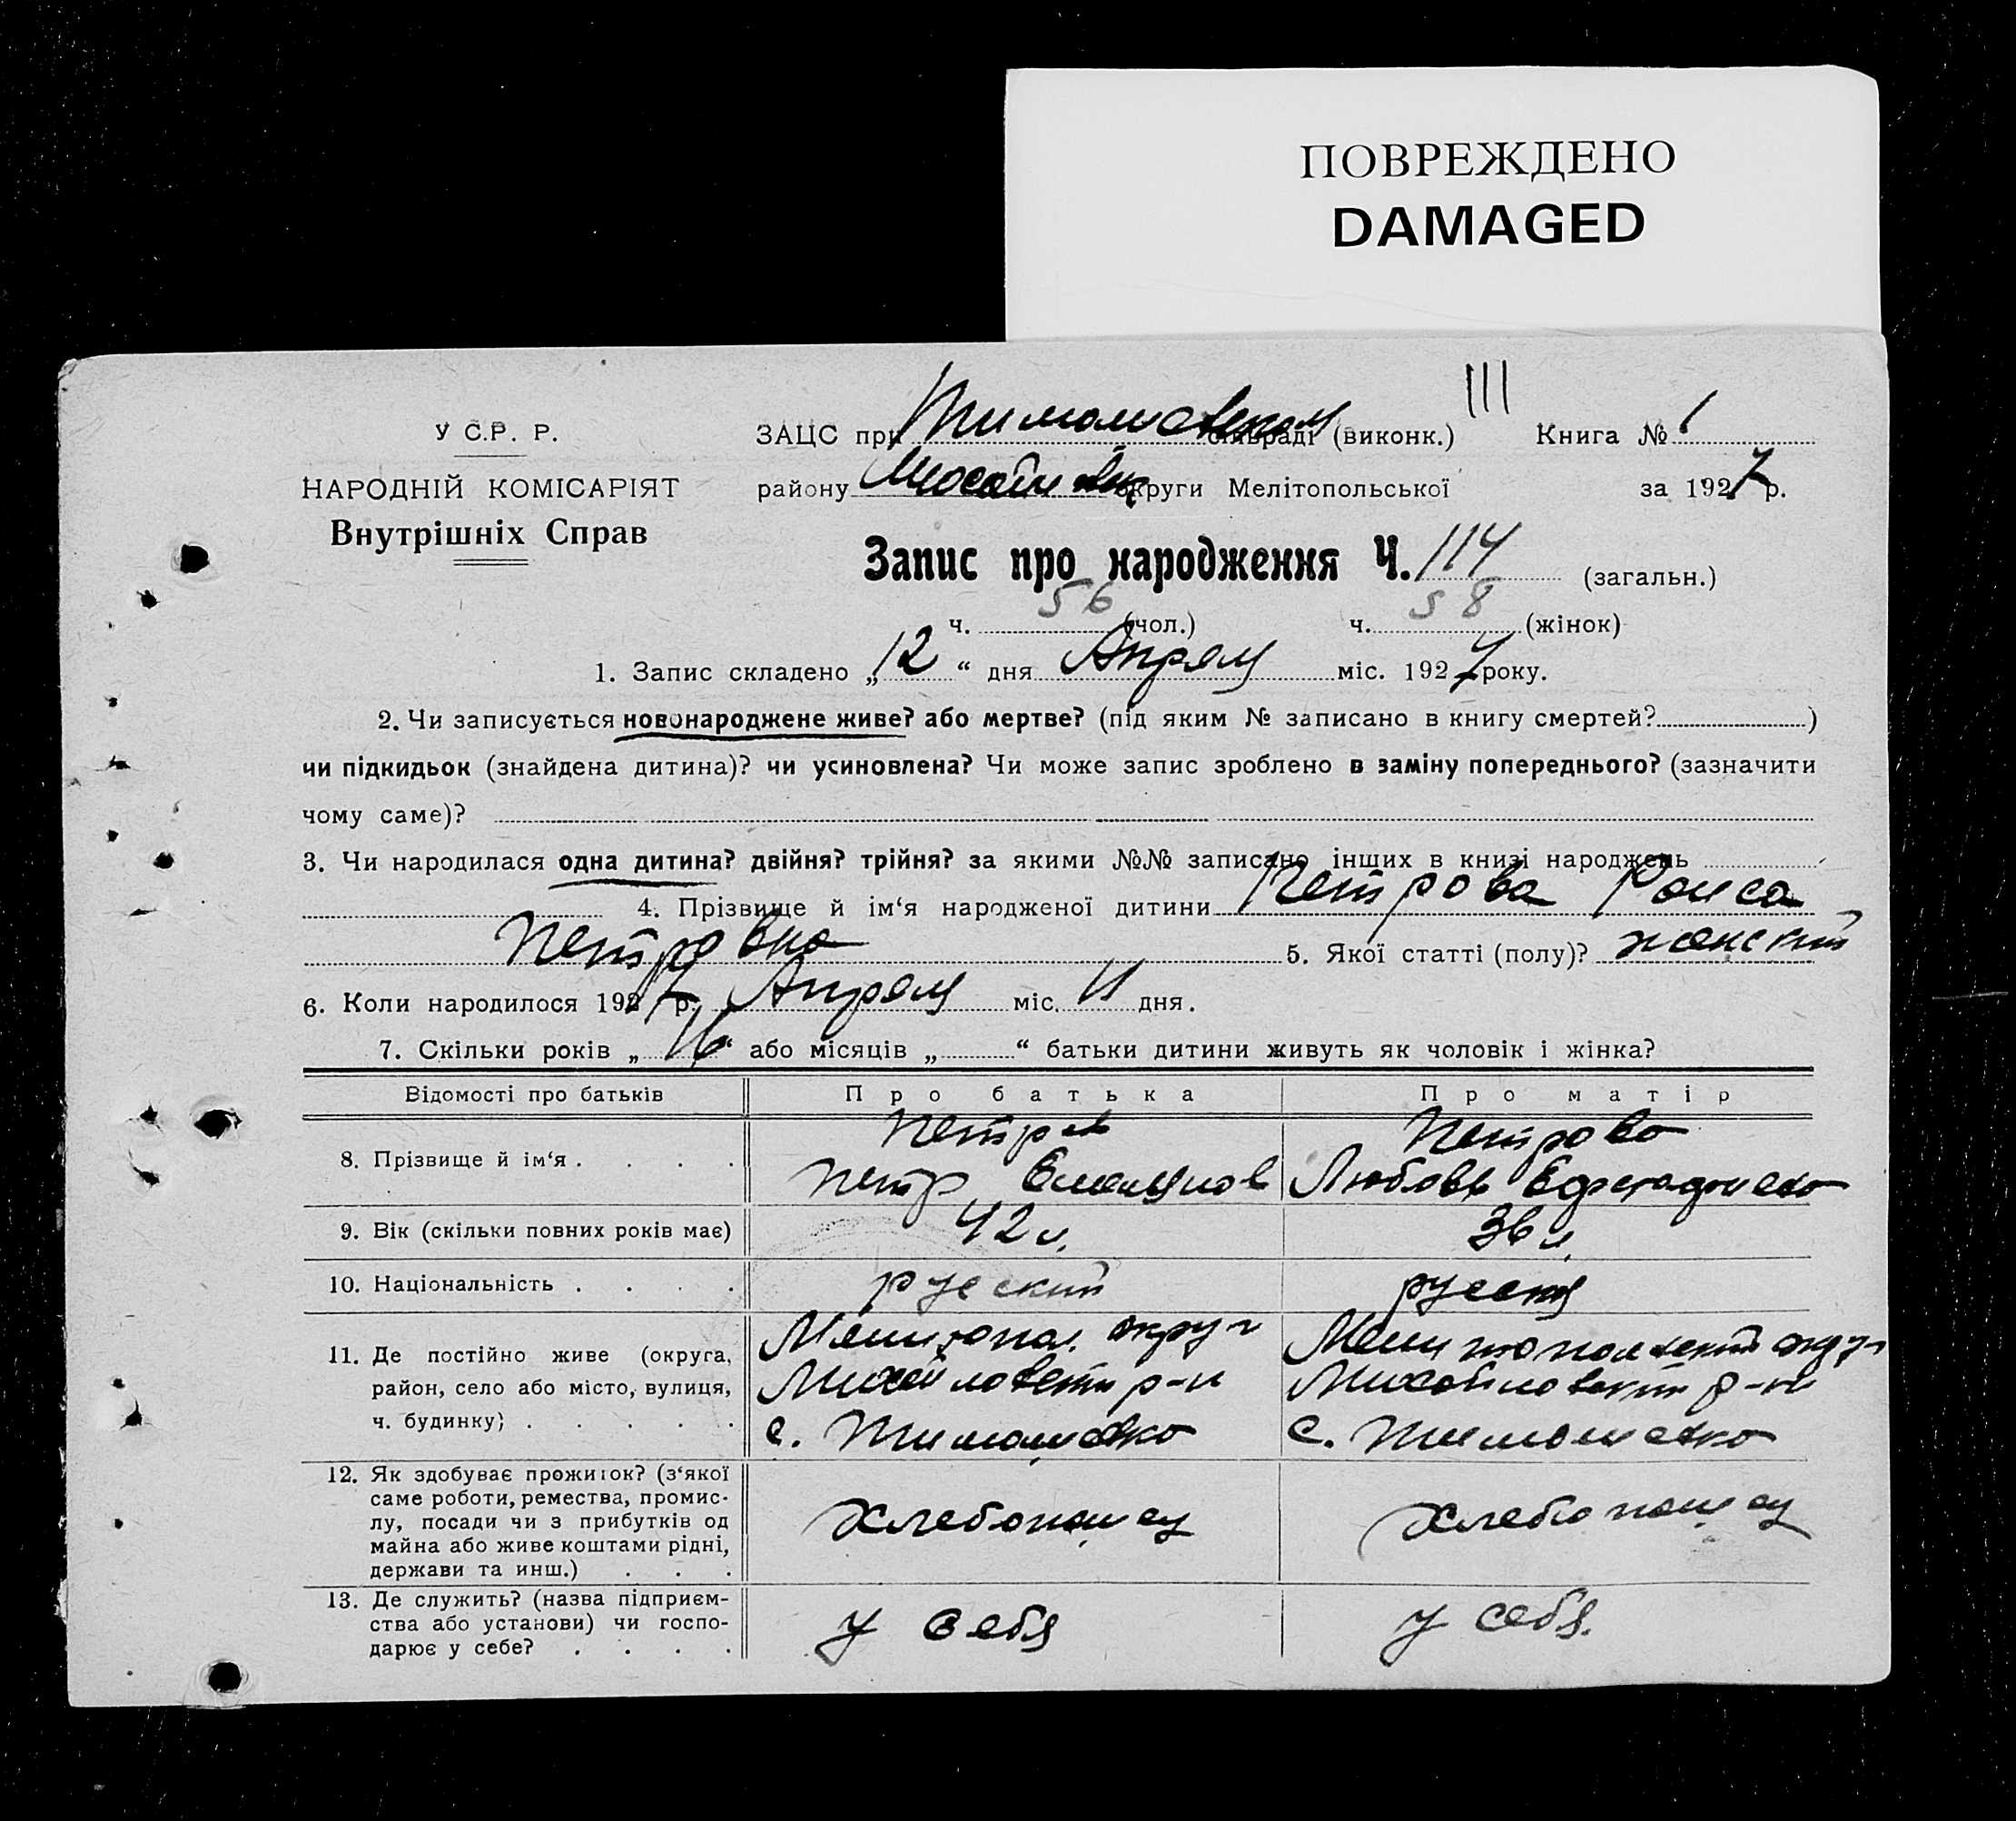 ПОВРЕЖДЕНО
DAMAGED
III
У С.Р. Р.
НАРОДНІЙ КОМІСАРІЯТ
Внутрішніх Справ
ЗАЦС при Тимошовском сільраді (виконк.) Книга № 1
району округи Мелітопольської за 1927 р.
Запис про народження Ч. 114 (загальн.)
ч. 56 (чол.) ч. 58 (жінок)
1. Запис складено „ 12 “ дня Апреля міс. 1927 року.
2. Чи записується новонароджене живе? або мертве? (під яким № записано в книгу смертей? )
чи підкидьок (знайдена дитина)? чи усиновлена? Чи може запис зроблено в заміну попереднього? (зазначити
чому саме)?
3. Чи народилася одна дитина? двійня? трійня? за якими №№ записано інших в книзі народжень
4. Прізвище й ім‘я народженої дитини Петрова Раиса
Петровна 5. Якої статті (полу)? женский
6. Коли народилося 1927 р. Апреля міс. 11 дня.
7. Скільки років „ 16 “ або місяців „ “ батьки дитини живуть як чоловік і жінка?
Відомості про батьків Про батька Про матір
8. Прізвище й ім‘я . . . . Петров Петрова
Петр Емельянов Любовь
9. Вік (скільки повних років має) 42 л. 36 л.
10. Національність . . . . русский русская
11. Де постійно живе (округа, Мелитопол. округ Мелитопольский округ
район, село або місто, вулиця, Михайловский р-н Михайловский р-н
ч. будинку) . . . . . с. Тимошовка с. Тимошовка
12. Як здобуває прожиток? (з‘якої
саме роботи, ремества, промис-
лу, посади чи з прибутків од Хлебопашец Хлебопашец
майна або живе коштами рідні,
держави та инш.) . . .
13. Де служить? (назва підприєм-
ства або установи) чи госпо- у себя у себя.
дарює у себе? . . . .